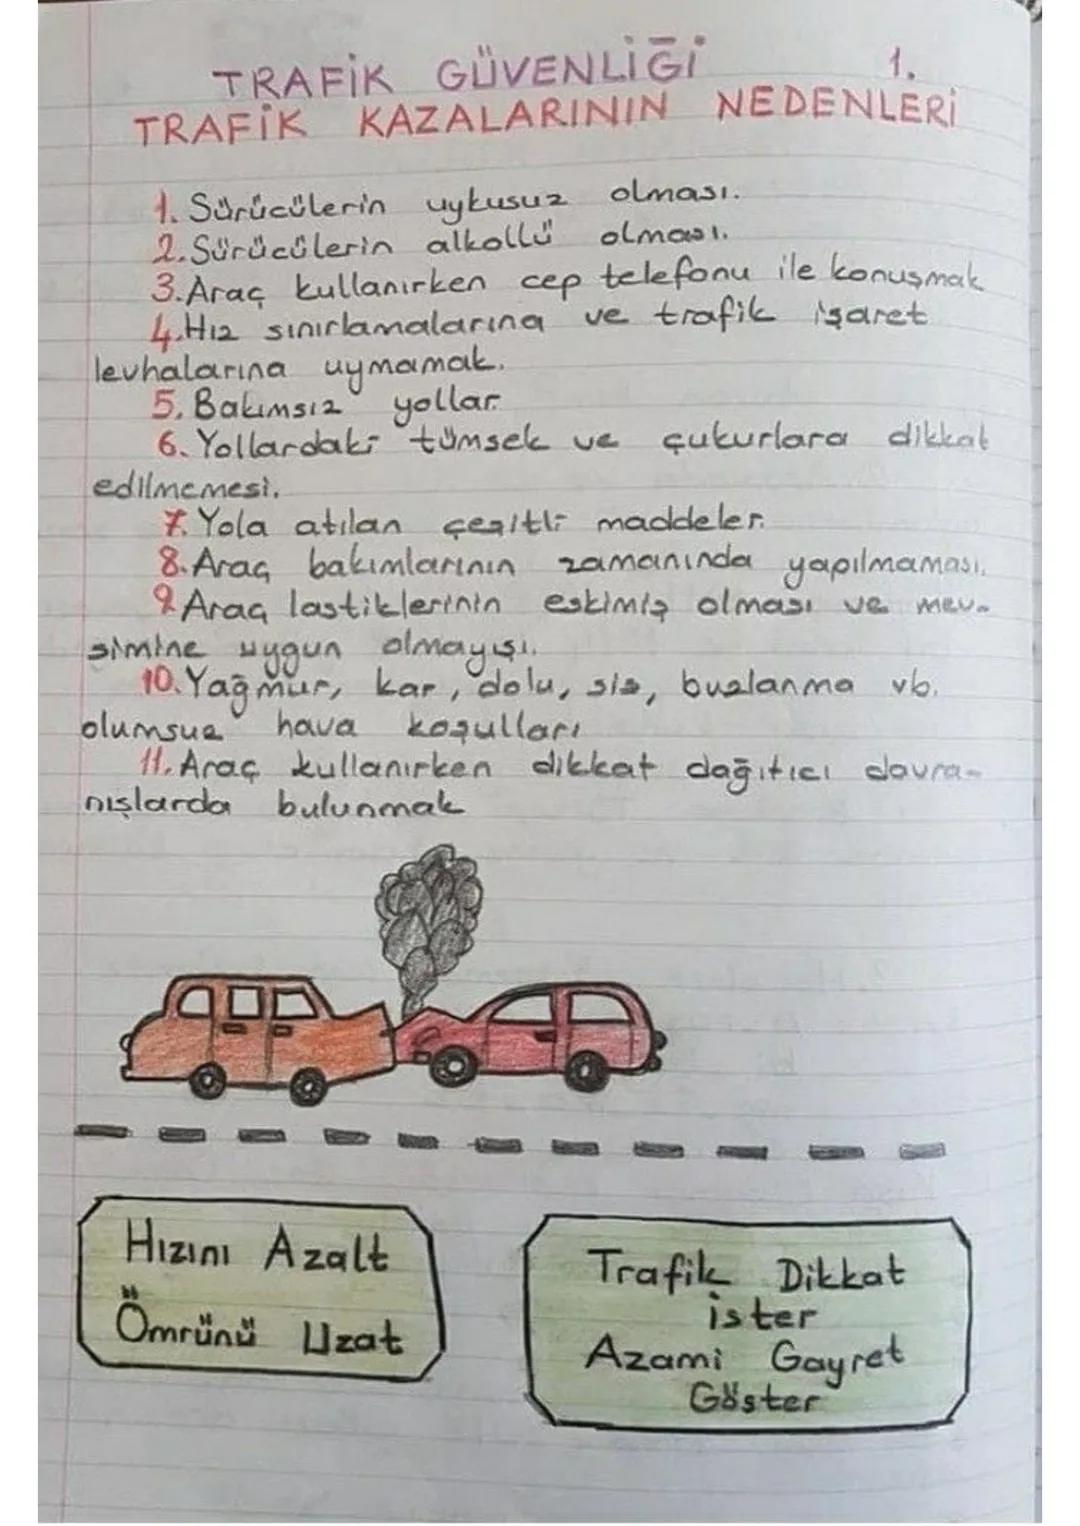 TRAFİK GÜVENLİĞİ 1.
TRAFİK KAZALARININ NEDENLERİ
1. Sürücülerin uykusuz olması.
2. Sürücülerin alkollü olması.
3. Araç kullanırken cep telefonu ile konuşmak
4. Hız sınırlamalarına ve trafik işaret
levhalarına uymamak.
5. Bakımsız yollar.
6. Yollardaki tümsek ve çukurlara dikkat
edilmemesi.
7. Yola atılan çeşitli maddeler.
8. Araç bakımlarının zamanında yapılmaması.
9. Araç lastiklerinin eskimiş olması ve mev-
simine uygun olmayışı.
10. Yağmur, kar, dolu, sis, buzlanma vb.
olumsuz hava koşulları
11. Araç kullanırken dikkat dağıtıcı davra-
nışlarda bulunmak
Hızını Azalt
Ömrünü Uzat
Trafik Dikkat
ister
Azami Gayret
Göster